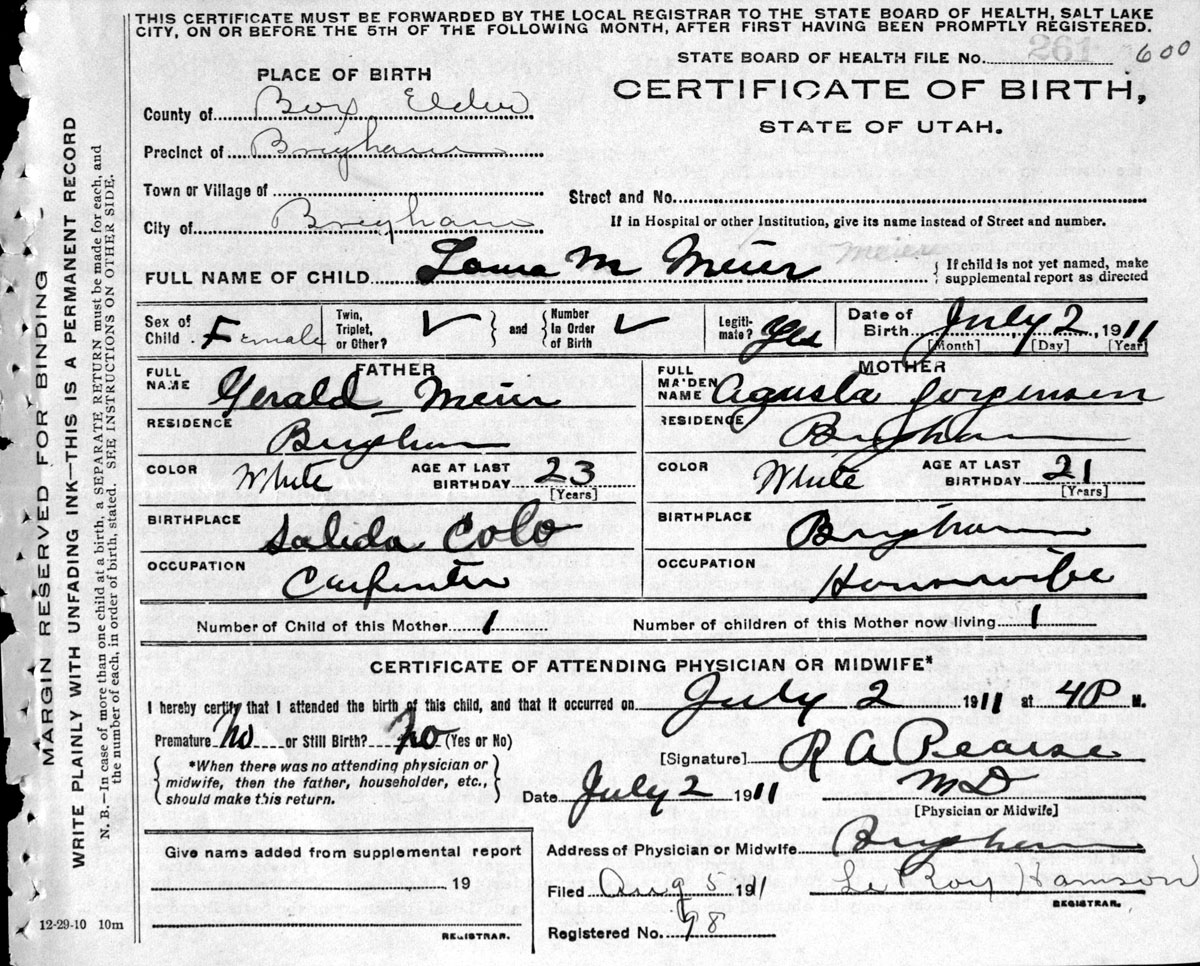 THIS CERTIFICATE MUST BE FORWARDED BY THE LOCAL REGISTRAR TO THE STATE BOARD OF HEALTH, SALT LAKE
CITY, ON OR BEFORE THE 5TH OF THE FOLLOWING MONTH, AFTER FIRST HAVING BEEN PROMPTLY REGISTERED.
STATE BOARD OF HEALTH FILE No. 261 600
CERTIFICATE OF BIRTH,
STATE OF UTAH.
PLACE OF BIRTH
County of Box Elder
Precinct of Brigham
Town or Village of
City of Brigham
Street and No.
If in Hospital or other Institution, give its name instead of Street and number.
FULL NAME OF CHILD Laura M Meier meier
If child is not yet named, make
supplemental report as directed
Sex of Child Female
Twin, Triplet, or Other? ✓ and Number In Order of Birth ✓
Legitimate? Yes
Date of Birth July 2, 1911
[Month] [Day] [Year]
FATHER
FULL NAME Gerald Meier
RESIDENCE Brigham
COLOR White AGE AT LAST BIRTHDAY 23 [Years]
BIRTHPLACE Salida Colo
OCCUPATION Carpenter
MOTHER
FULL MAIDEN NAME Agusta Jorgensen
RESIDENCE Brigham
COLOR White AGE AT LAST BIRTHDAY 21 [Years]
BIRTHPLACE Brigham
OCCUPATION Housewife
Number of Child of this Mother 1 Number of children of this Mother now living 1
CERTIFICATE OF ATTENDING PHYSICIAN OR MIDWIFE*
I hereby certify that I attended the birth of this child, and that it occurred on July 2 1911 at 4P M.
Premature No or Still Birth? No (Yes or No)
*When there was no attending physician or
midwife, then the father, householder, etc.,
should make this return.
[Signature] R A Pearse
M D
[Physician or Midwife]
Date July 2 1911
Address of Physician or Midwife Brigham
Give name added from supplemental report
19
REGISTRAR.
Filed Aug 5 1911 Le Roy Hamson
REGISTRAR.
Registered No. 98
12-29-10 10m
MARGIN RESERVED FOR BINDING
WRITE PLAINLY WITH UNFADING INK—THIS IS A PERMANENT RECORD
N. B.—In case of more than one child at a birth, a SEPARATE RETURN must be made for each, and
the number of each, in order of birth, stated. SEE INSTRUCTIONS ON OTHER SIDE.